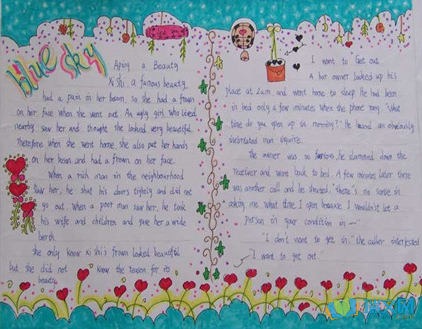 blue sky
Aping a Beauty
Xi shi, a famous beauty,
had a pain in her bosom, so she had a frown
on her face when she went out. An ugly girl who lived
nearby saw her and thought she looked very beautiful.
Therefore when she went home, she also put her hands
on her bosom and had a frown on her face.
When a rich man in the neighbourhood
saw her, he shut his doors tightly and did not
go out. When a poor man saw her, he took
his wife and children and gave her a wide
berth.
She only know xi shi's frown looked beautiful
but she did not know the reason for its
beauty.
I want to Get out
A bar owner locked up his
place at 2 a.m. and went home to sleep. He had been
in bed only a few minutes when the phone rang. "What
time do you open up in morning?" He heard an obviously
inebriated man inquire.
The owner was so furious, he slammed down the
and went back to bed. A few minutes later there
was another call and he
asking me what time I open because I wouldn't let a
person in your condition in—"
"I don't want to get in." the caller interjected
"I want to get out."